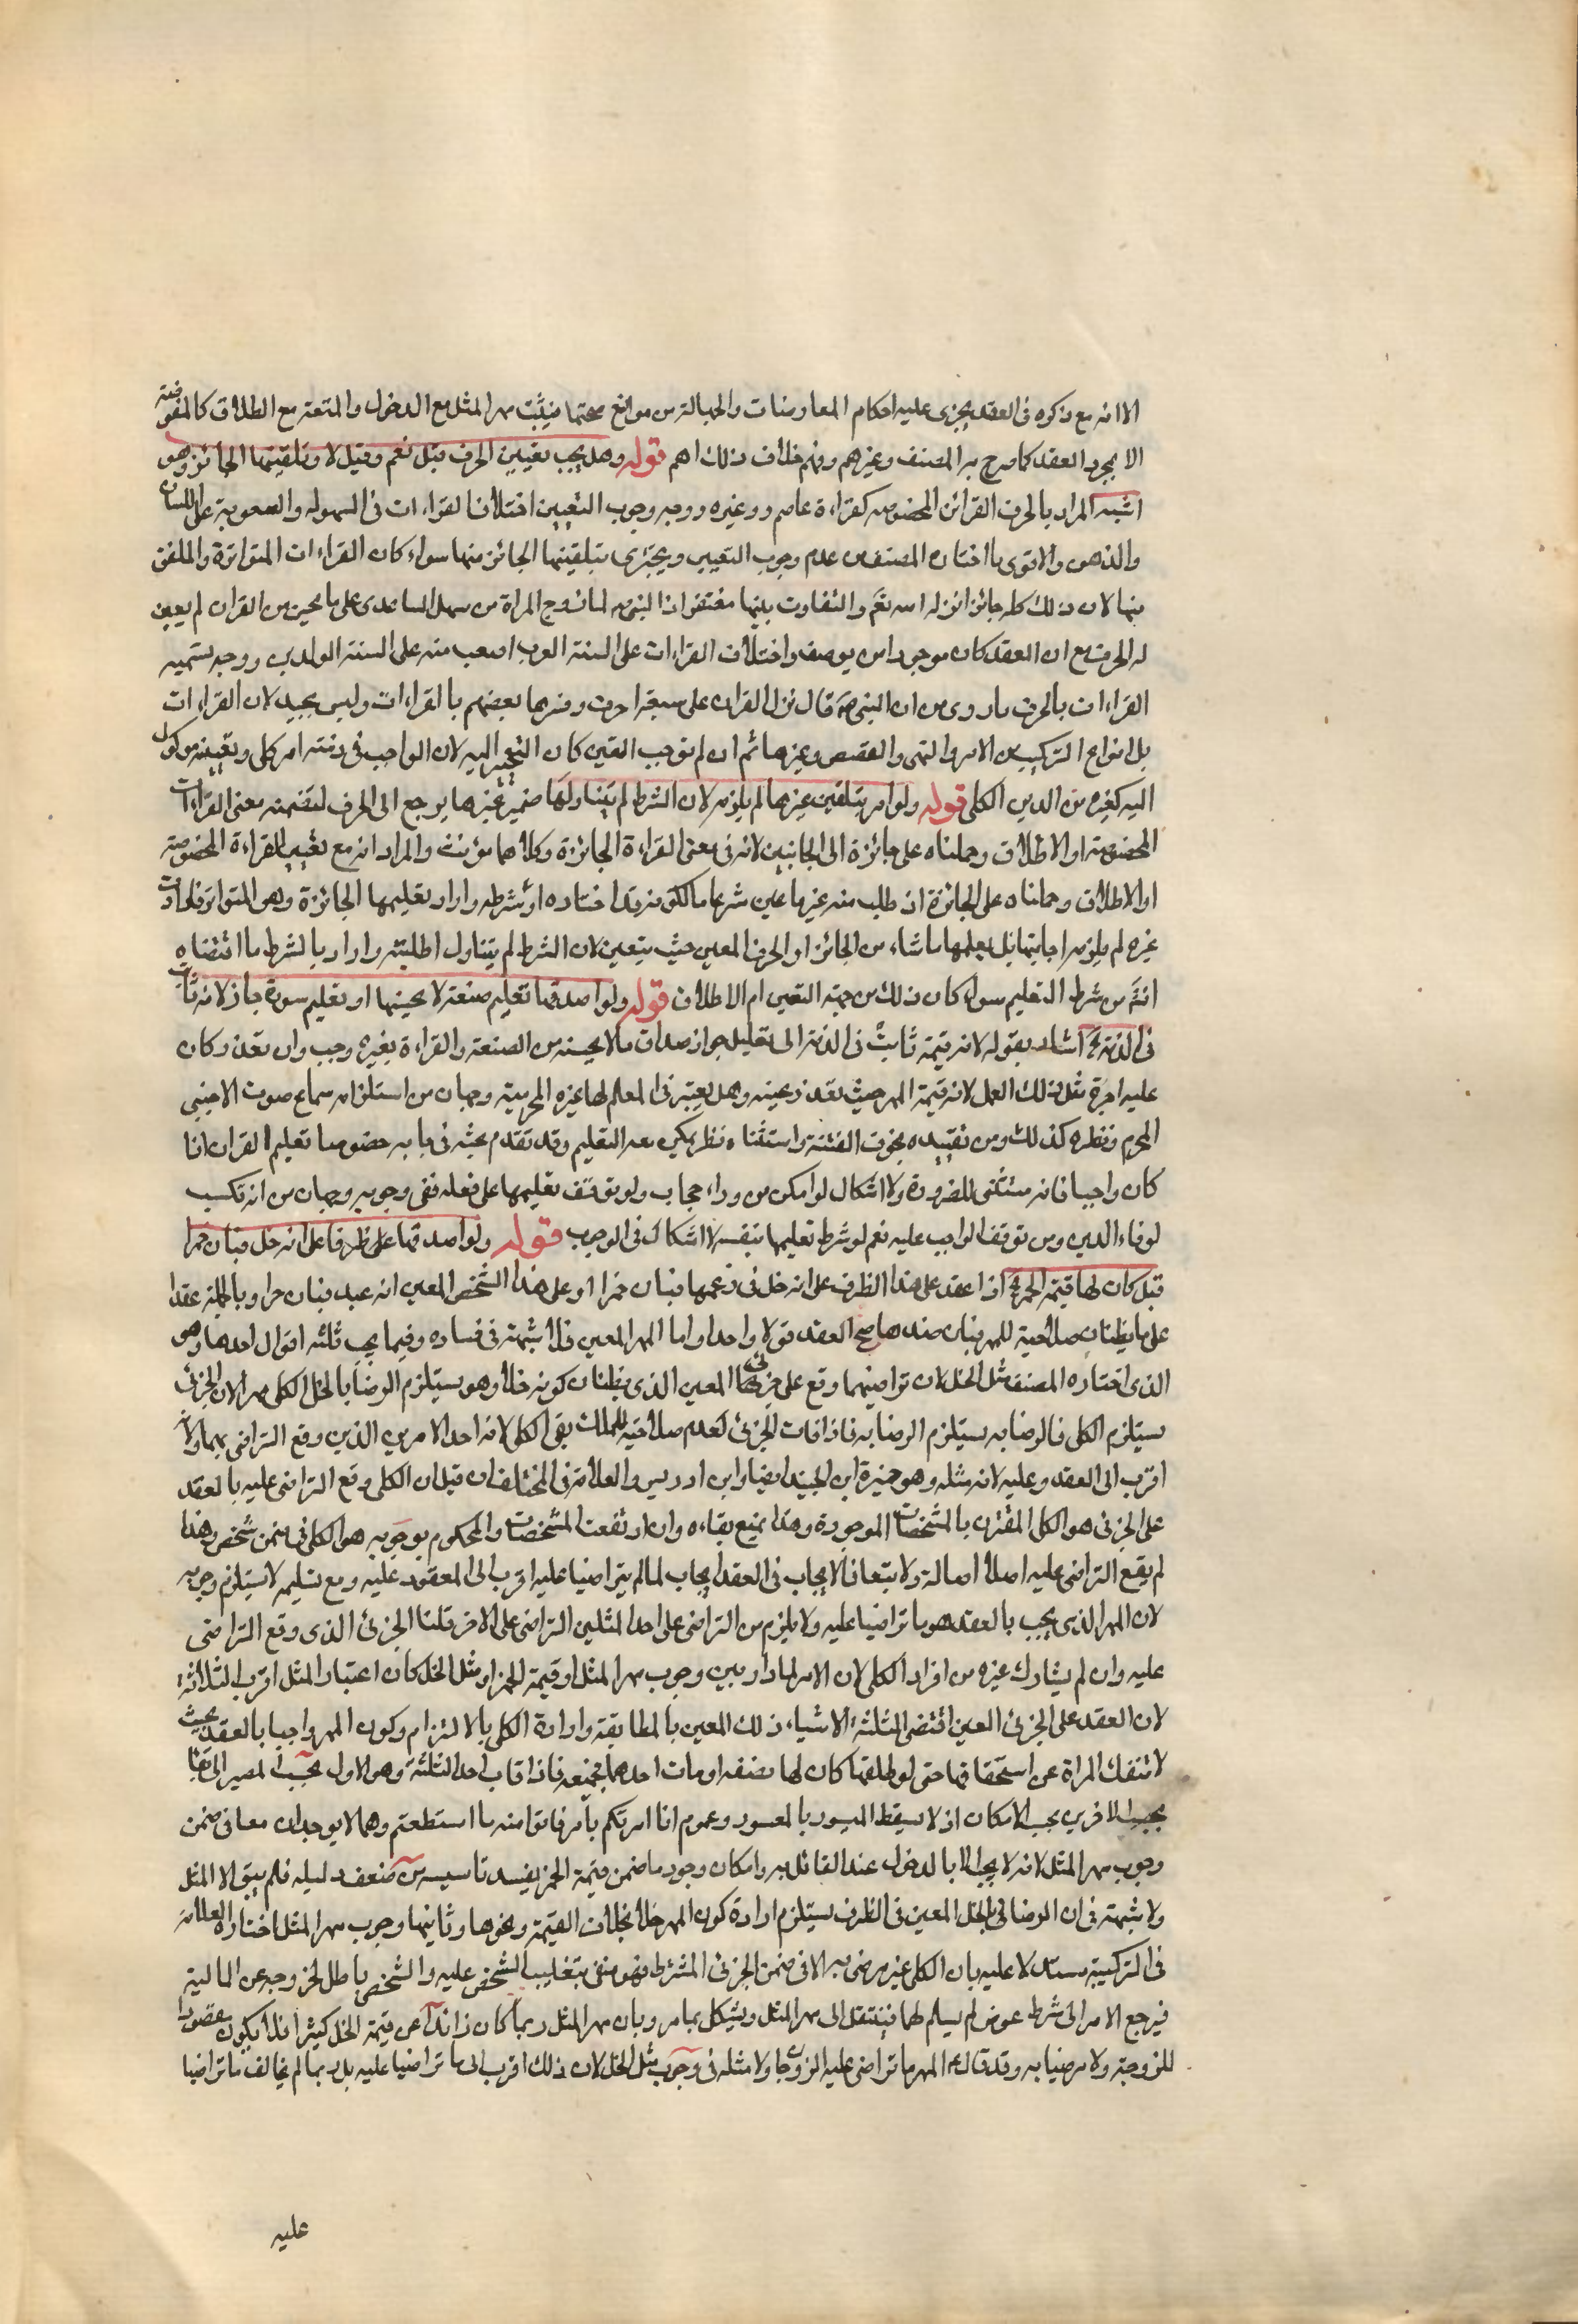 الا انه مع ذكره فى العقد يجرى عليه احكام المعاوضات والجهالة من موانع صحتها فيثبت مهر المثل مع الدخول والمتعة مع الطلاق كالمفوضة
الا بمجرد العقد كما صرح به المصنف وغيرهم ومنهم خلاف ذلك اهم قوله وهل يجب تعيين الحرف قيل نعم وقيل لا ويلقينها الجائز وهو
اشبه المراد بالحرف القرائن المخصوصه كقراءة عاصم وغيره ووجه وجوب التعيين اختلاف القراءات فى السهوله والصعوبة على اللسان
والذهن والاقوى ما اختاره المصنف من عدم وجوب التعيين ويجتزى بتلقينها الجائز منها سواء كان القراءات المتواترة والملفق
منها لان ذلك كله جائز انزله اسه تعَ والتفاوت بينها مغتفر اذ النبى صه لما زوج المراة من سهل الساعدى على ما يحسن من القران لم يعين
له الحرف مع ان العقد كان موجودا من يوصف واختلاف القراءات على السنة العرب اصعب منه على السنة المولدين ووجه تسميه
القراءات بالحرف ما روى من ان النبى صه قال نزل القران على سبعة احرف وفسرها بعضهم بالقراءات وليس بجيد لان القراءات
بل انواع التركيب من الامر والنهى والقصص وغيرها ثم ان لم نوجب التعين كان التخيير اليه لان الواجب فى ذمته امر كلى وتعيينه موكول
اليه كغيره من الدين الكلى قوله ولو امر بتلقين غيرها لم يلزمه لان الشرط لم يتناولها ضمير غيرها يرجع الى الحرف لتضمنه معنى القراءات
المخصوصة او الاطلاق وحملناه على جائزة الى الجانبين لانه فى معنى القراءة الجائزة وكلاهما مؤنث والمراد انه مع تعيين القراءة المخصوصة
او الاطلاق وحملناه على الجائزة ان طلب منه غيرها عين شرعا مالكونه قد اختاره او شرطه واراد تعليمها الجائزة وهى المتواتر فلو ارادت
غيره لم يلزمه اجابتها بل يعلمها ما شاء من الجائز او الحرف المعين حيث يتعين لان الشرط لم يتناول ما طلبته واراد بالشرط ما اقتضاه
انثَ من شرط التعليم سواء كان ذلك من جهة التعيين ام الاطلاق قوله ولو اصدقها تعليم صنعة لا يحسنها او تعليم سورة جاز لانه ثابت
فى الذمة الخ اشار بقوله لانه قيمة ثابت فى الذمة الى تعليل جواز صداق ما لا يحسنه من الصنعة والقراءة بغيره وجب وان تعذر كان
عليه اجرة مثل ذلك العمل لانه قيمة المهر حيث تعذر عينه وهل يعتبر فى المعلم لها غيره المحرمية وجهان من استلزامه سماع صوت الاجنبى
المحرم ونظره كذلك ومن تقييده بخوف الفتنة واستثناء نظر يمكن معه التعليم وقد تقدم بحثه فى بابه خصوصا تعليم القران اذا
كان واجبا فانه مستثنى للضرورة ولا اشكال لو امكن من وراء حجاب ولو توقف تعليمها على فعله ففى وجوبه وجهان من انه تكسب
لوفاء الدين ومن توقف الواجب عليه نعم لو شرط تعليمها بنفسه لا اشكال فى الوجوب قوله ولو اصدقها على ظرف على انه خل فبان خمرا
قيل كان لها قيمة الخمر الخ اذا عقد على هذا الظرف على انه خل فى زعمهما فبان خمرا او على هذا الشخص المعين انه عبد فبان حرا وبالجملة عقدا
على ما يظنان صلاحية للمهر فبان ضدها صح العقد قولا واحدا واما المهر المعين فلا شبهة فى فساده وفيما يجب ثلثه اقوال احدها وهو
الذى اختاره المصنف مثل الخل لان تراضيهما وقع على جزئى المعين الذى يظنان كونه خلا وهو يستلزم الرضا بالخل الكلى مهرا لان الجزئى
يستلزم الكلى فالرضا به يستلزم الرضا به فاذا فات الجزئى لعدم صلاحيته للملك بقى الكلى لانه احد الامرين الذين وقع التراضى بهما ولانه
اقرب الى العقد وعليه لانه مثله وهو خيرة ابن الجنيد ايضا وابن ادريس والعلامة فى المختلف ان قيل ان الكلى وقع التراضى عليه بالعقد
على الجزئى هو الكلى المقترن بالمشخصات الموجودة وهذا يمنع بقاءه وان ارتفعت المشخصات والمحكوم بوجوبه هو الكلى فى ضمن شخص وهذا
لم يقع التراضى عليه اصلا اصالة ولا تبعا فالايجاب فى العقد ايجاب لما لم يتراضيا عليه اقرب الى المعقود عليه ومع تسليمه لا يستلزم وجوبه
لان المهر الذى يجب بالعقد هو ما تراضيا عليه ولا يلزم من التراضى على احد المثلين التراضى على الاخر قلنا الجزئى الذى وقع التراضى
عليه وان لم يشارك غيره من افراد الكلى لان الامر لما دار بين وجوب مهر المثل او قيمة الخمر او مثل الخل كان اعتبار المثل اقرب الثلاثة
لان العقد على الجزئى العين اقتضى الثلثة الاشياء ذلك المعين بالمطابقة وارادة الكلى بالالتزام وكون المهر واجبا بالعقد بحيث
لا تنفك المراة عن استحقاقها حتى لو طلقها كان لها نصفه او مات احدهما فجميعه فاذا فات احد الثلثة وهو الاول يجب المصير الى ابقاء
الاخرين بحسب الامكان اذ لا يسقط الميسور بالمعسور وعموم اذا امرتكم بامر فاتوا منه ما استطعتم وهما لا يوجدان معا فى ضمن
وجوب مهر المثل لانه لا يجب الا بالدخول عند القائل به وامكان وجود ما ضمن قيمة الخمر يفسد تاسيسه ضعف دليله فلم يبق الا المثل
ولا شبهة فى ان الرضا بالخل المعين فى الظرف يستلزم ارادة كون المهر خلا بخلاف القيمة ونحوها وثانيها وجوب مهر المثل اختاره العلامة
فى التركيبة مستدلا عليه بان الكلى غير مرضى به الا فى ضمن الجزئى المشترط فهو منفى بتغليب الشخص عليه والشخص باطل لخروجه عن المالية
فيرجع الامر الى شرط عوض لم يسلم لهما فينتقل الى مهر المثل ويشكل بما مر وبان مهر المثل ربما كان زائدا عن قيمة الخل كثيرا فلا يكون مقصودا
للزوجة ولا مرضيا به وقد قال ع المهر ما تراضى عليه الزوجان ولا مثله فى وجوب مثل الخل لان ذلك اقرب الى ما تراضيا عليه بل ربما لم يخالف ما تراضيا
عليه